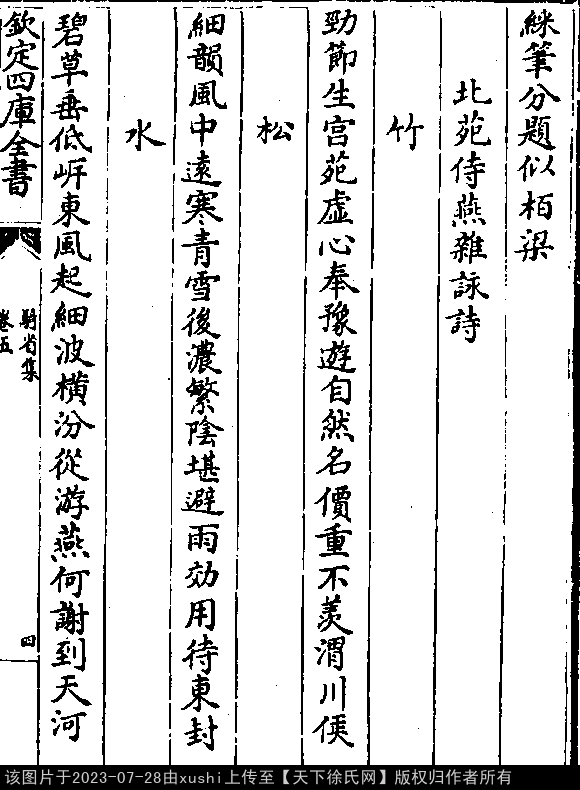 綵筆分題似栢梁
北苑侍燕雜詠詩
竹
勁節生宫苑虚心奉豫遊自然名價重不羨渭川侯
松
細韻風中遠寒青雪後濃繁陰堪避雨効用待東封
水
碧草垂低岸東風起細波橫汾從游燕何謝到天河
欽定四庫全書
騎省集
卷五
四
该图片于2023-07-28由xushi上传至【天下徐氏网】版权归作者所有